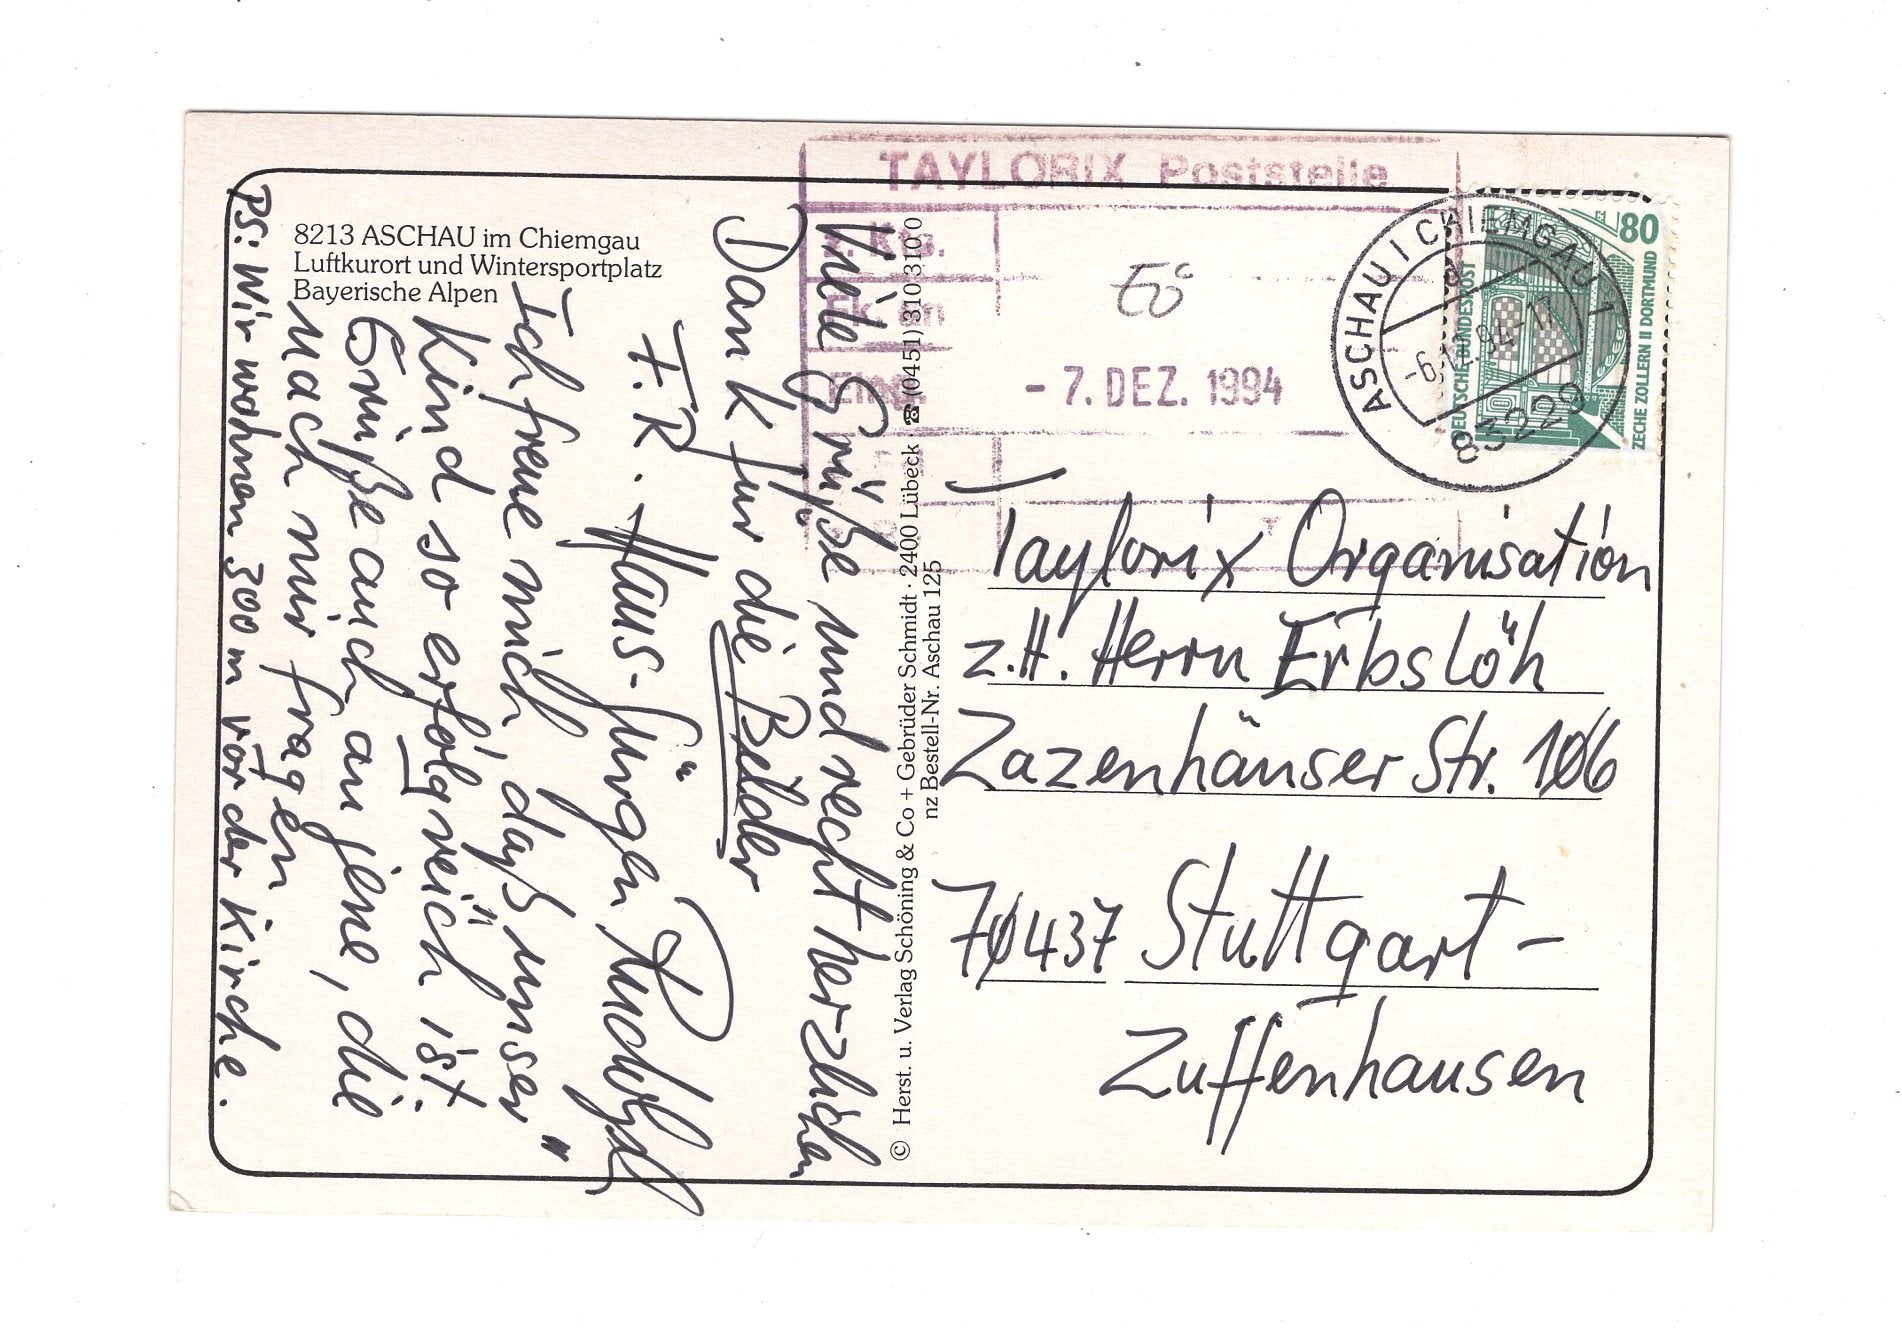 8213 ASCHAU im Chiemgau
Luftkurort und Wintersportplatz
Bayerische Alpen
Viele Grüße und recht herzlichen
Dank für die Bilder
F.R. Hans-Jürgen Rudolph
Ich freue mich, daß unser "
Kind so erfolgreich" ist.
Grüße auch an jene, die
nach mir fragen
PS: Wir wohnen 300 m vor der Kirche.
© Herst. u. Verlag Schöning & Co + Gebrüder Schmidt · 2400 Lübeck · ☎ (0451) 310 310 0
nz Bestell-Nr. Aschau 125
TAYLORIX Poststelle
z. Kts.
Eö
Eing.
- 7. DEZ. 1994
ASCHAU I CHIEMGAU 1
a
-6.12.94-17
83229
80
DEUTSCHE BUNDESPOST
ZECHE ZOLLERN II DORTMUND
Taylorix Organisation
z.H. Herrn Erbslöh
Zazenhäuser Str. 106
70437 Stuttgart-
Zuffenhausen